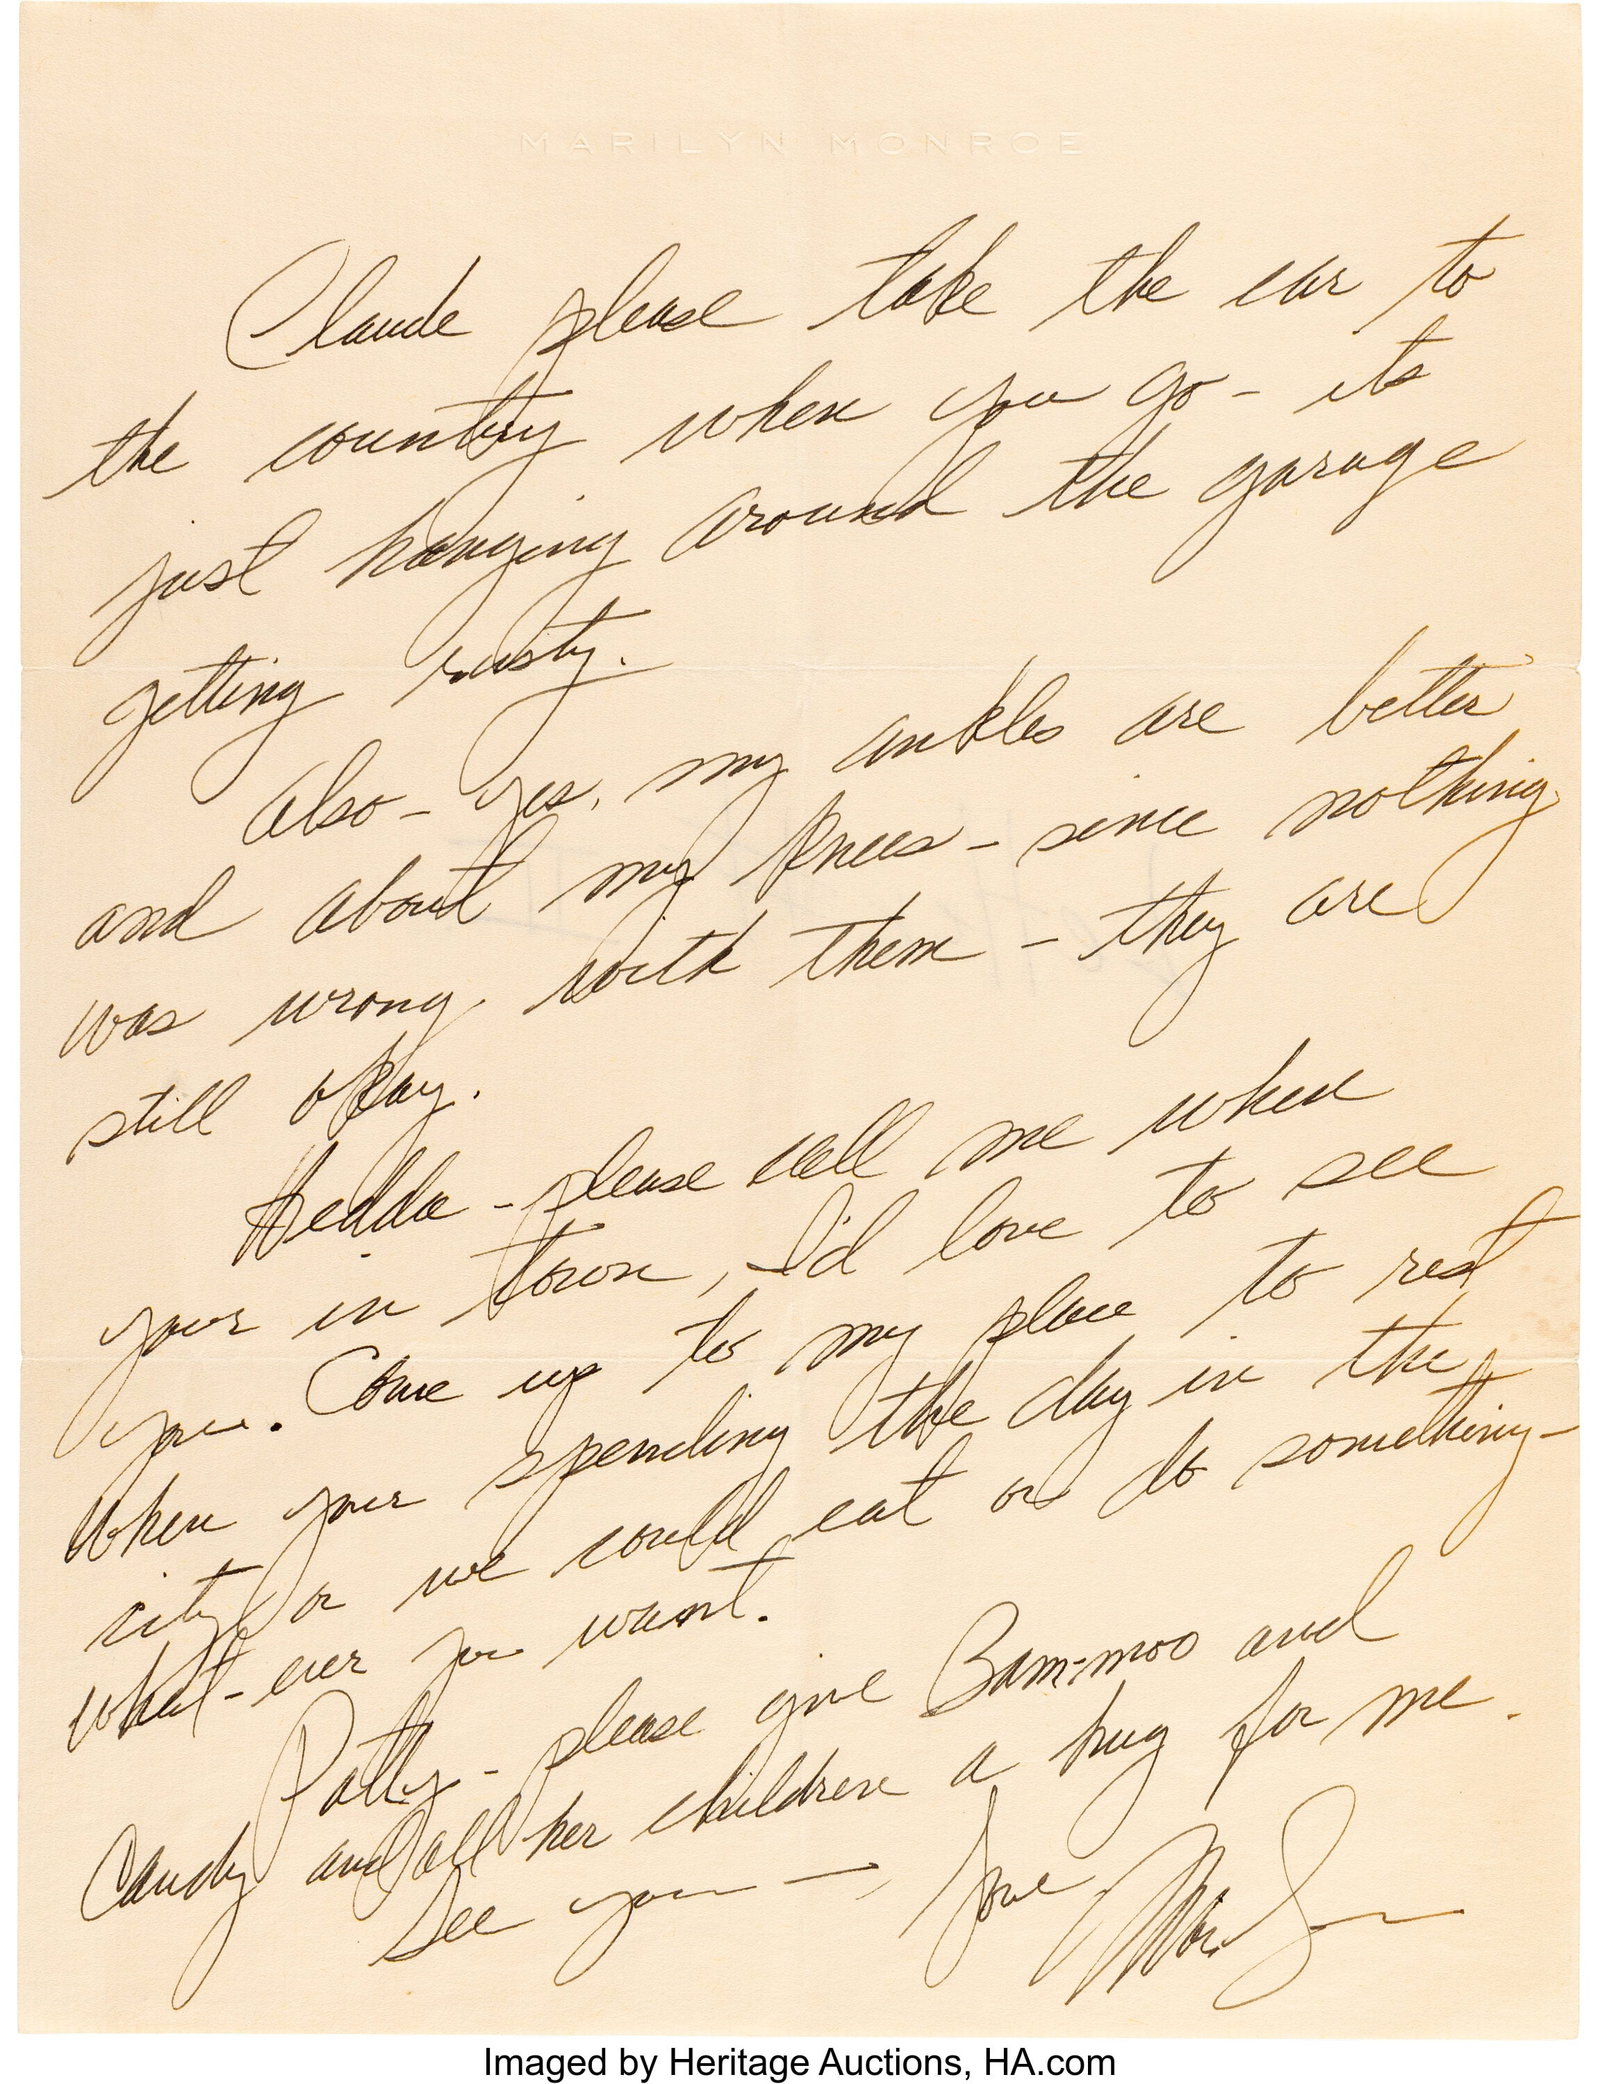 MARILYN MONROE
Claude please take the car to
the country when you go - its
just hanging around the garage
getting rusty.
Also - yes, my ankles are better
and about my knees - since nothing
was wrong with them - they are
still okay.
Hedda - please call me when
your in town, I'd love to see
you. Come up to my place to rest
when your spending the day in the
city or we could eat or do something -
what-ever you want.
Patty - please give Bam-moo and
Candy and all her children a hug for me.
See you — love
Marilyn
Imaged by Heritage Auctions, HA.com